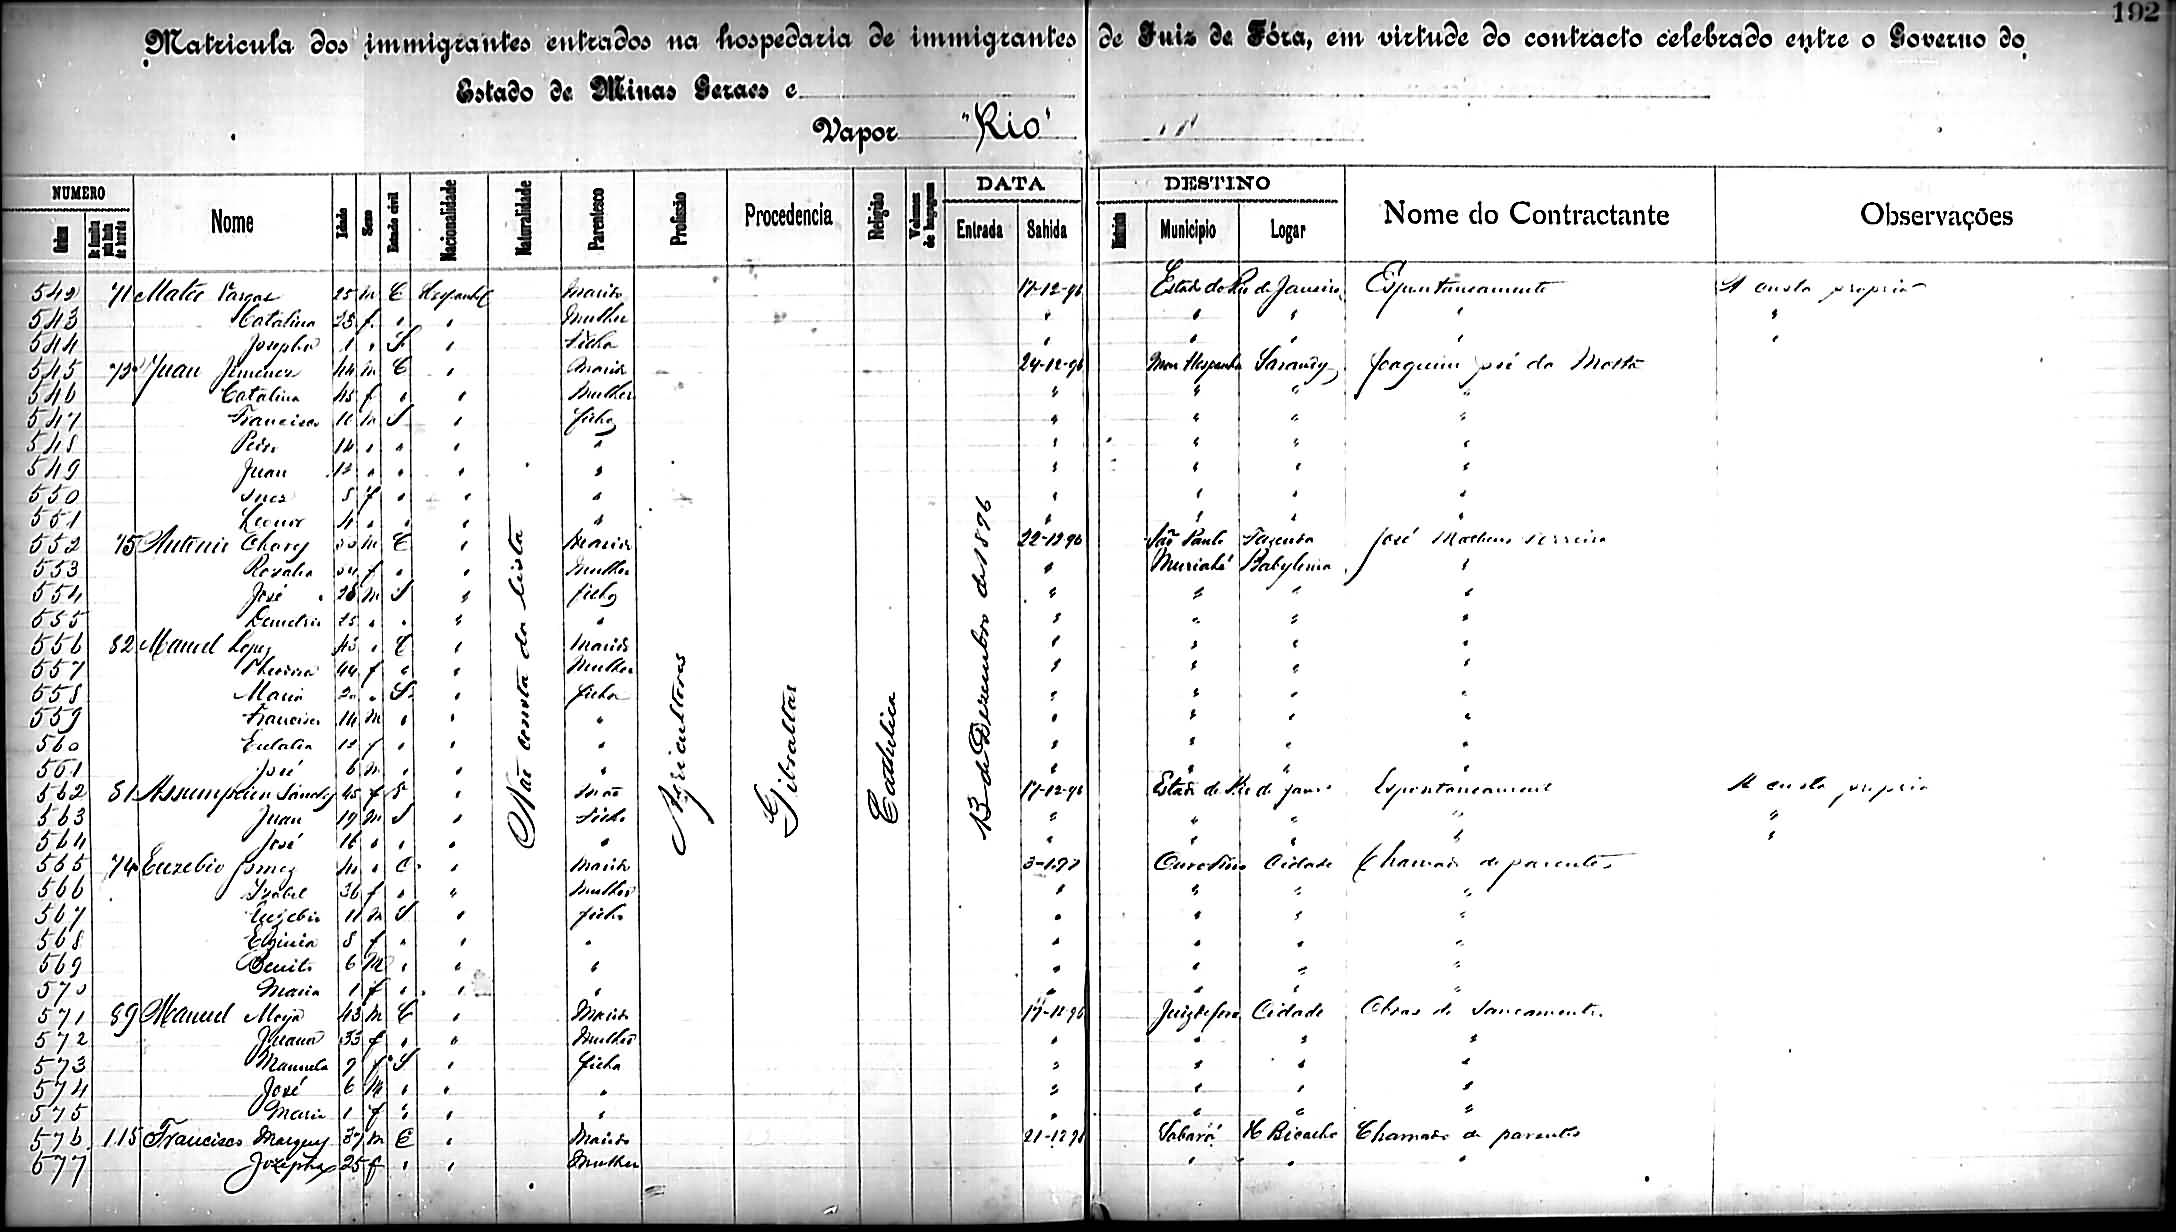 192
Matricula dos immigrantes entrados na hospedaria de immigrantes de Juiz de Fóra, em virtude do contracto celebrado entre o Governo do
Estado de Minas Geraes e
Vapor "Rio"
NUMERO Nome Idade Sexo Estado civil Nacionalidade Naturalidade Parentesco Profissão Procedencia Religião Volumes de bagagem DATA Entrada Sahida DESTINO Municipio Logar Nome do Contractante Observações
Não consta da lista
Agricultores
Gibraltar
Catholica
13 de Dezembro de 1896
542 71 Vargas 25 m C Marido 17-12-96 Estado do Rio de Janeiro Espontaneamente A custa propria
543 Catalina f " " Mulher " " " " "
544 Josepha 1 " S " Filha " " " " "
545 72 Juan Jimenez 44 m C " Marido 24-12-96 Mar Hespanha Sarandy Joaquim José da Motta
546 Catalina 45 f " " Mulher " " " "
547 Francisco m S " filho " " " "
548 Pedro 14 " " " " " " " "
549 Juan 12 " " " " " " " "
550 Inez 8 f " " " " " " "
551 Leonor 4 " " " " " " " "
552 75 Antonio m C " Marido 22-12-96 São Paulo Fazenda José Matheus Ferreira
553 Rosalia f " " Mulher " Muriahé Babylonia "
554 José m S " filho " " " "
555 Demetrio 25 " " " " " " " "
556 82 Manuel Lopez 45 " C " Marido " " " "
557 44 f " " Mulher " " " "
558 Maria 20 " S " filha " " " "
559 Francisco 14 m " " " " " " "
560 Eulalia 12 f " " " " " " "
561 José 6 m " " " " " " "
562 81 Assumpcion Sanchez 45 f " 17-12-96 Estado do Rio de Janro Espontaneament A custa propria
563 Juan 19 m S " Filho " " " " "
564 José 16 " " " " " " " " "
565 74 Euzebio Gomez " C " Marido 3-1-97 Ouro Fino Cidade Chamado de parentes
566 Izabel 36 f " " Mulher " " " "
567 Euzebio 11 m S " filho " " " "
568 8 f " " " " " " "
569 Benito 6 M " " " " " " "
570 Maria 1 f " " " " " " "
571 89 Manuel Moya 43 m C " Marido 17-12-96 Juiz de fora Cidade Obras de Saneamento
572 Juana 33 f " " Mulher " " " "
573 Manuela 9 f S " filha " " " "
574 José 6 M " " " " " " "
575 Maria 1 f " " " " " " "
576 115 Francisco Marquez 37 m C " Marido 21-12-96 Sabará Chamado de parentes
577 Jozepha 25 f " " Mulher " " "